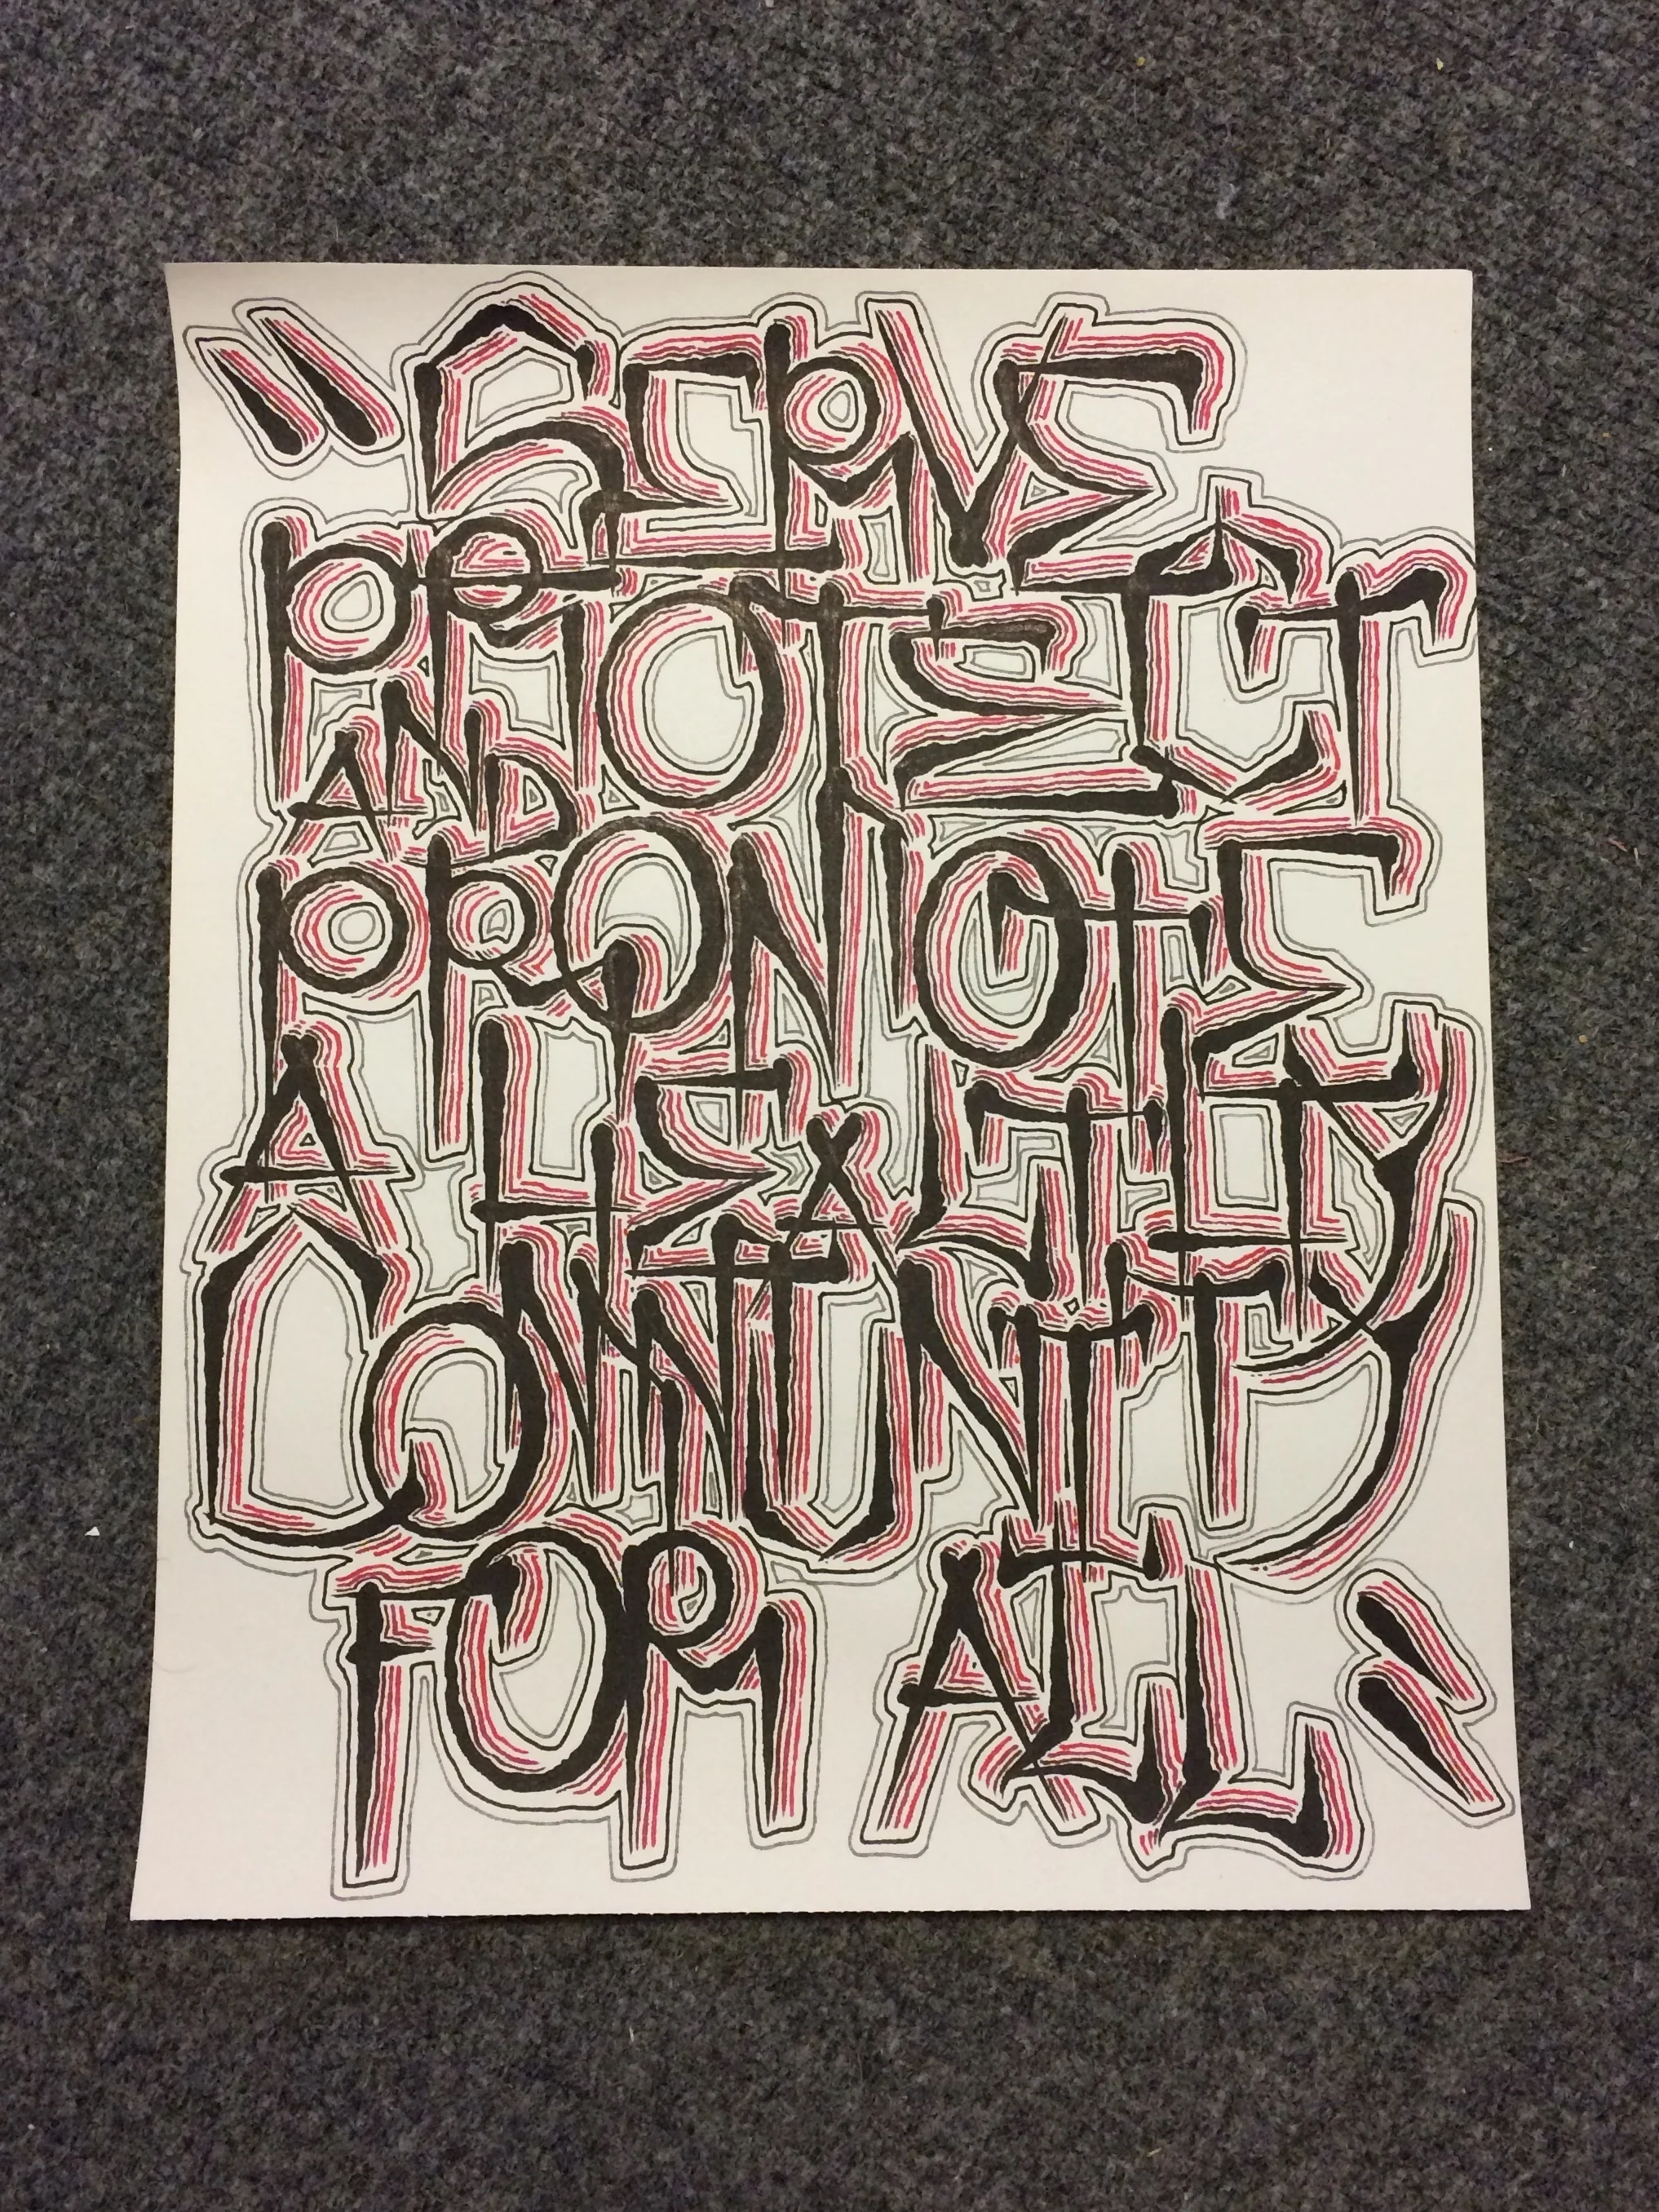 "SERVE
PROTECT
AND
PROMOTE
A HEALTHY
COMMUNITY
FOR ALL"